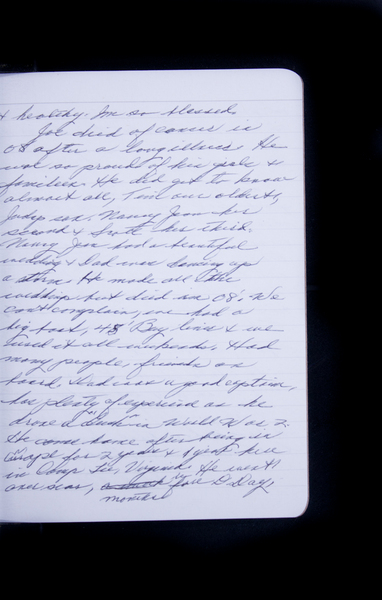 & healthy. Im so blessed.
Joe died of cancer in
08 after a long illness. He
was so proud of his gals &
families. He did get to know
almost all, Tim our oldest,
Judys son. Nancy Jean her
second & Scott her third.
Nancy Jean had a beautiful
wedding & Dad was dancing up
a storm. He made all the
weddings but died in 08'. We
can't complain, we had a
big boat, 48' Bay liner & we
used it all weekends. Had
many people, friends on
board, Dad was a good captain,
has plenty of experience as he
drove a "Duck" in World War 2.
He came home after being in
Europe for 2 years & 1 year here
in Camp Lee, Virginia. He went
over seas, in for D Day,
months